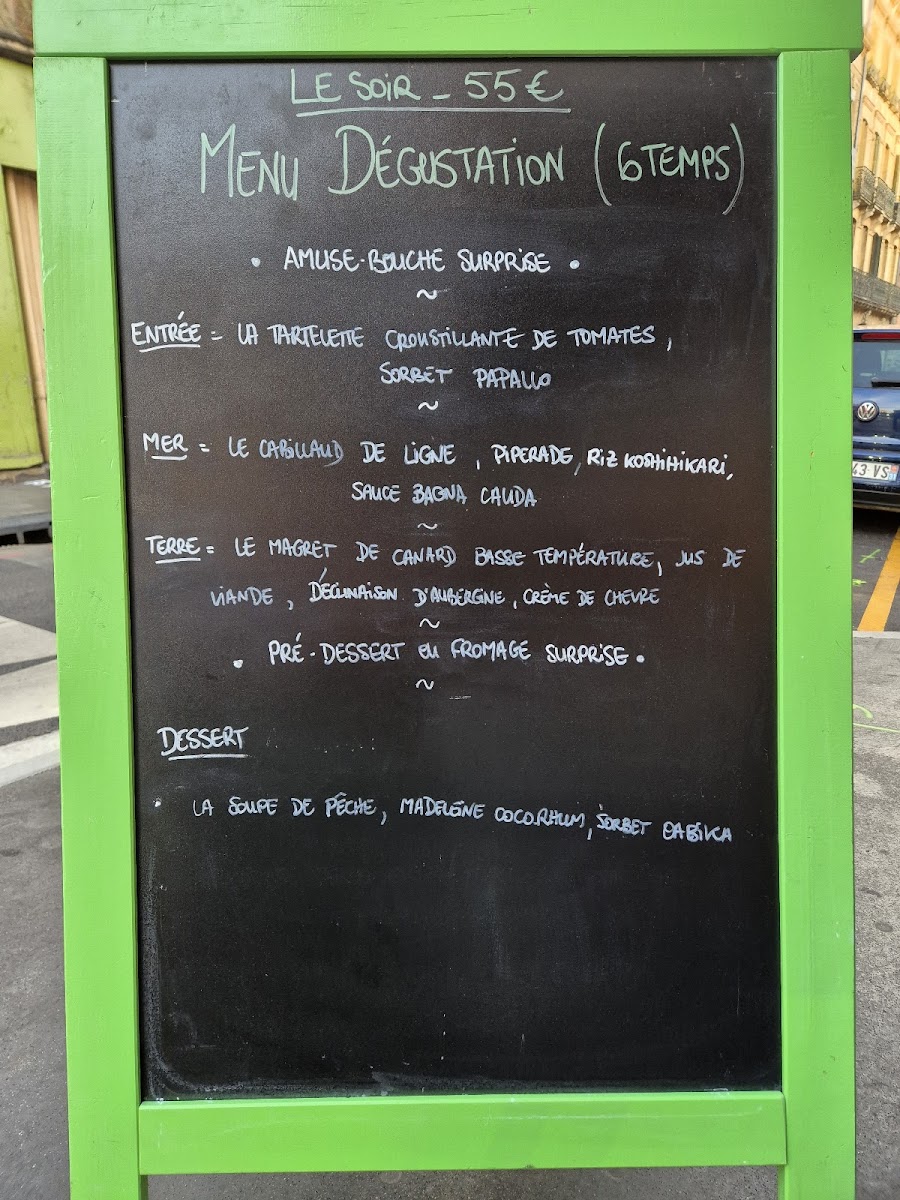 LE SOIR - 55€
MENU DÉGUSTATION (6 TEMPS)
• AMUSE-BOUCHE SURPRISE •
~
ENTRÉE = LA TARTELETTE CROUSTILLANTE DE TOMATES,
SORBET PAPALLO
~
MER = LE CABILLAUD DE LIGNE, PIPERADE, RIZ KOSHIHIKARI,
SAUCE BAGNA CAUDA
~
TERRE = LE MAGRET DE CANARD BASSE TEMPÉRATURE, JUS DE
VIANDE, DÉCLINAISON D'AUBERGINE, CRÈME DE CHEVRE
~
• PRÉ-DESSERT OU FROMAGE SURPRISE •
~
DESSERT
• LA SOUPE DE PÊCHE, MADELEINE COCO.RHUM, SORBET
43 VS